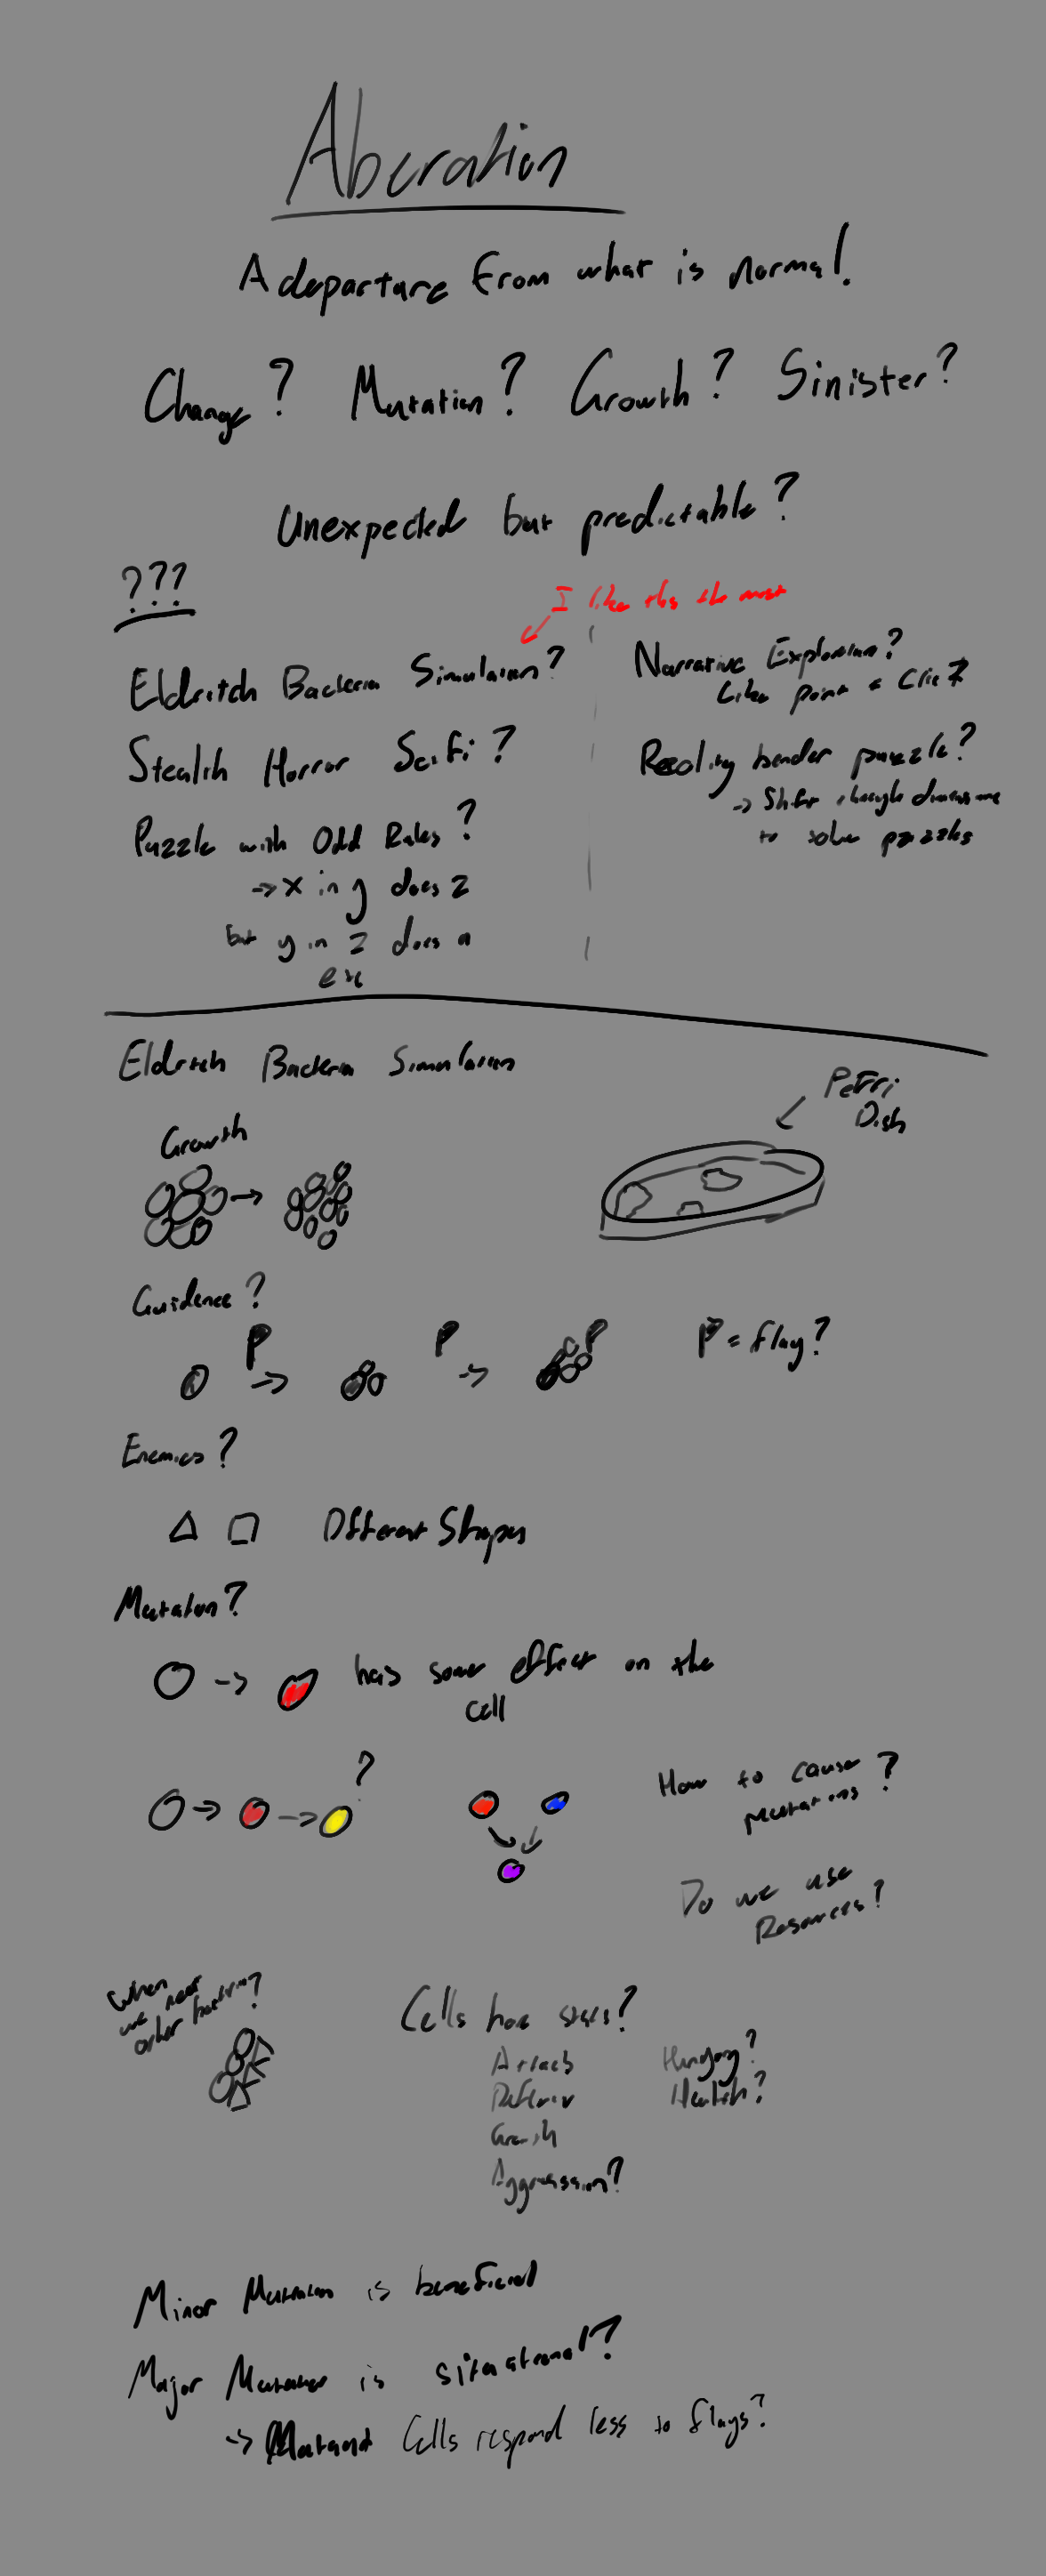 Aberation
A departure from what is normal.
Change? Mutation? Growth? Sinister?
Unexpected but predictable?
???
I like this the most
Eldritch Bacteria Simulation?
Stealth Horror Scifi?
Puzzle with Odd Rules?
-> x in y does z
but y in z does a
etc
Narrative Exploration?
Like point & Click
Reality bender puzzle?
-> Shift through dimensions
to solve puzzles
Eldritch Bacteria Simulation
Growth
Petri
Dish
Guidence?
P P P P = flag?
Enemies?
Different Shapes
Mutation?
has some effect on the
cell
?
How to cause
mutations?
Do we use
Resources?
When
we near
other bacteria?
Cells have stats?
Attack
Defense
Growth
Aggression?
Hungry?
Health?
Minor Mutation is beneficial
Major Mutation is situational?
-> Mutant Cells respond less to flags?